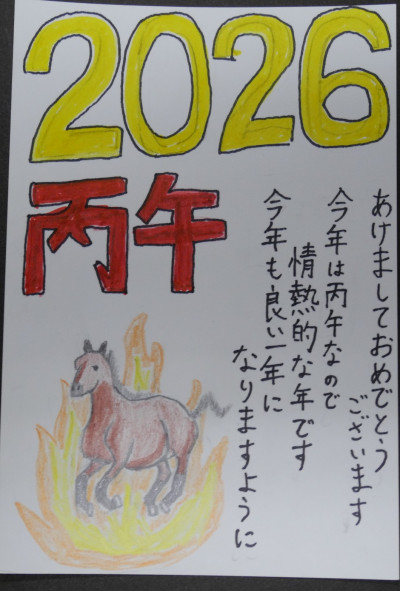 2026
丙午
あけましておめでとう
ございます
今年は丙午なので
情熱的な年です
今年も良い一年に
なりますように